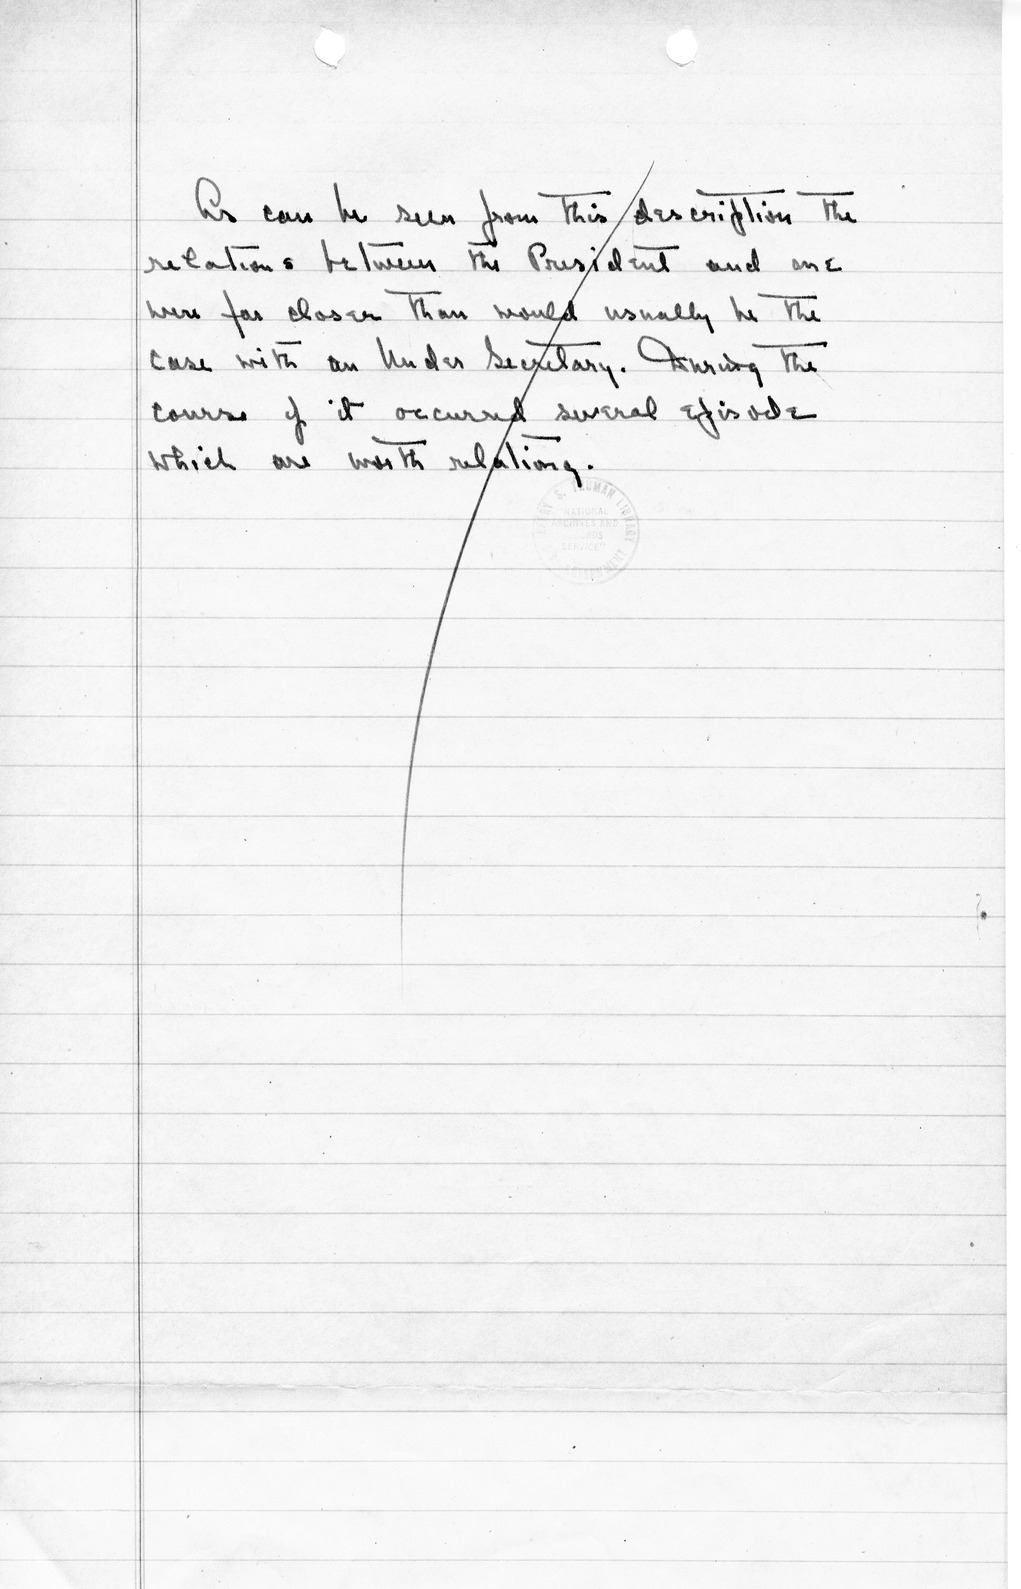 As can be seen from this description the
relations between the President and me
were far closer than would usually be the
case with an Under Secretary. During the
course of it occurred several episode
which are worth relating.
HARRY S. TRUMAN LIBRARY
NATIONAL
ARCHIVES AND
RECORDS
SERVICE